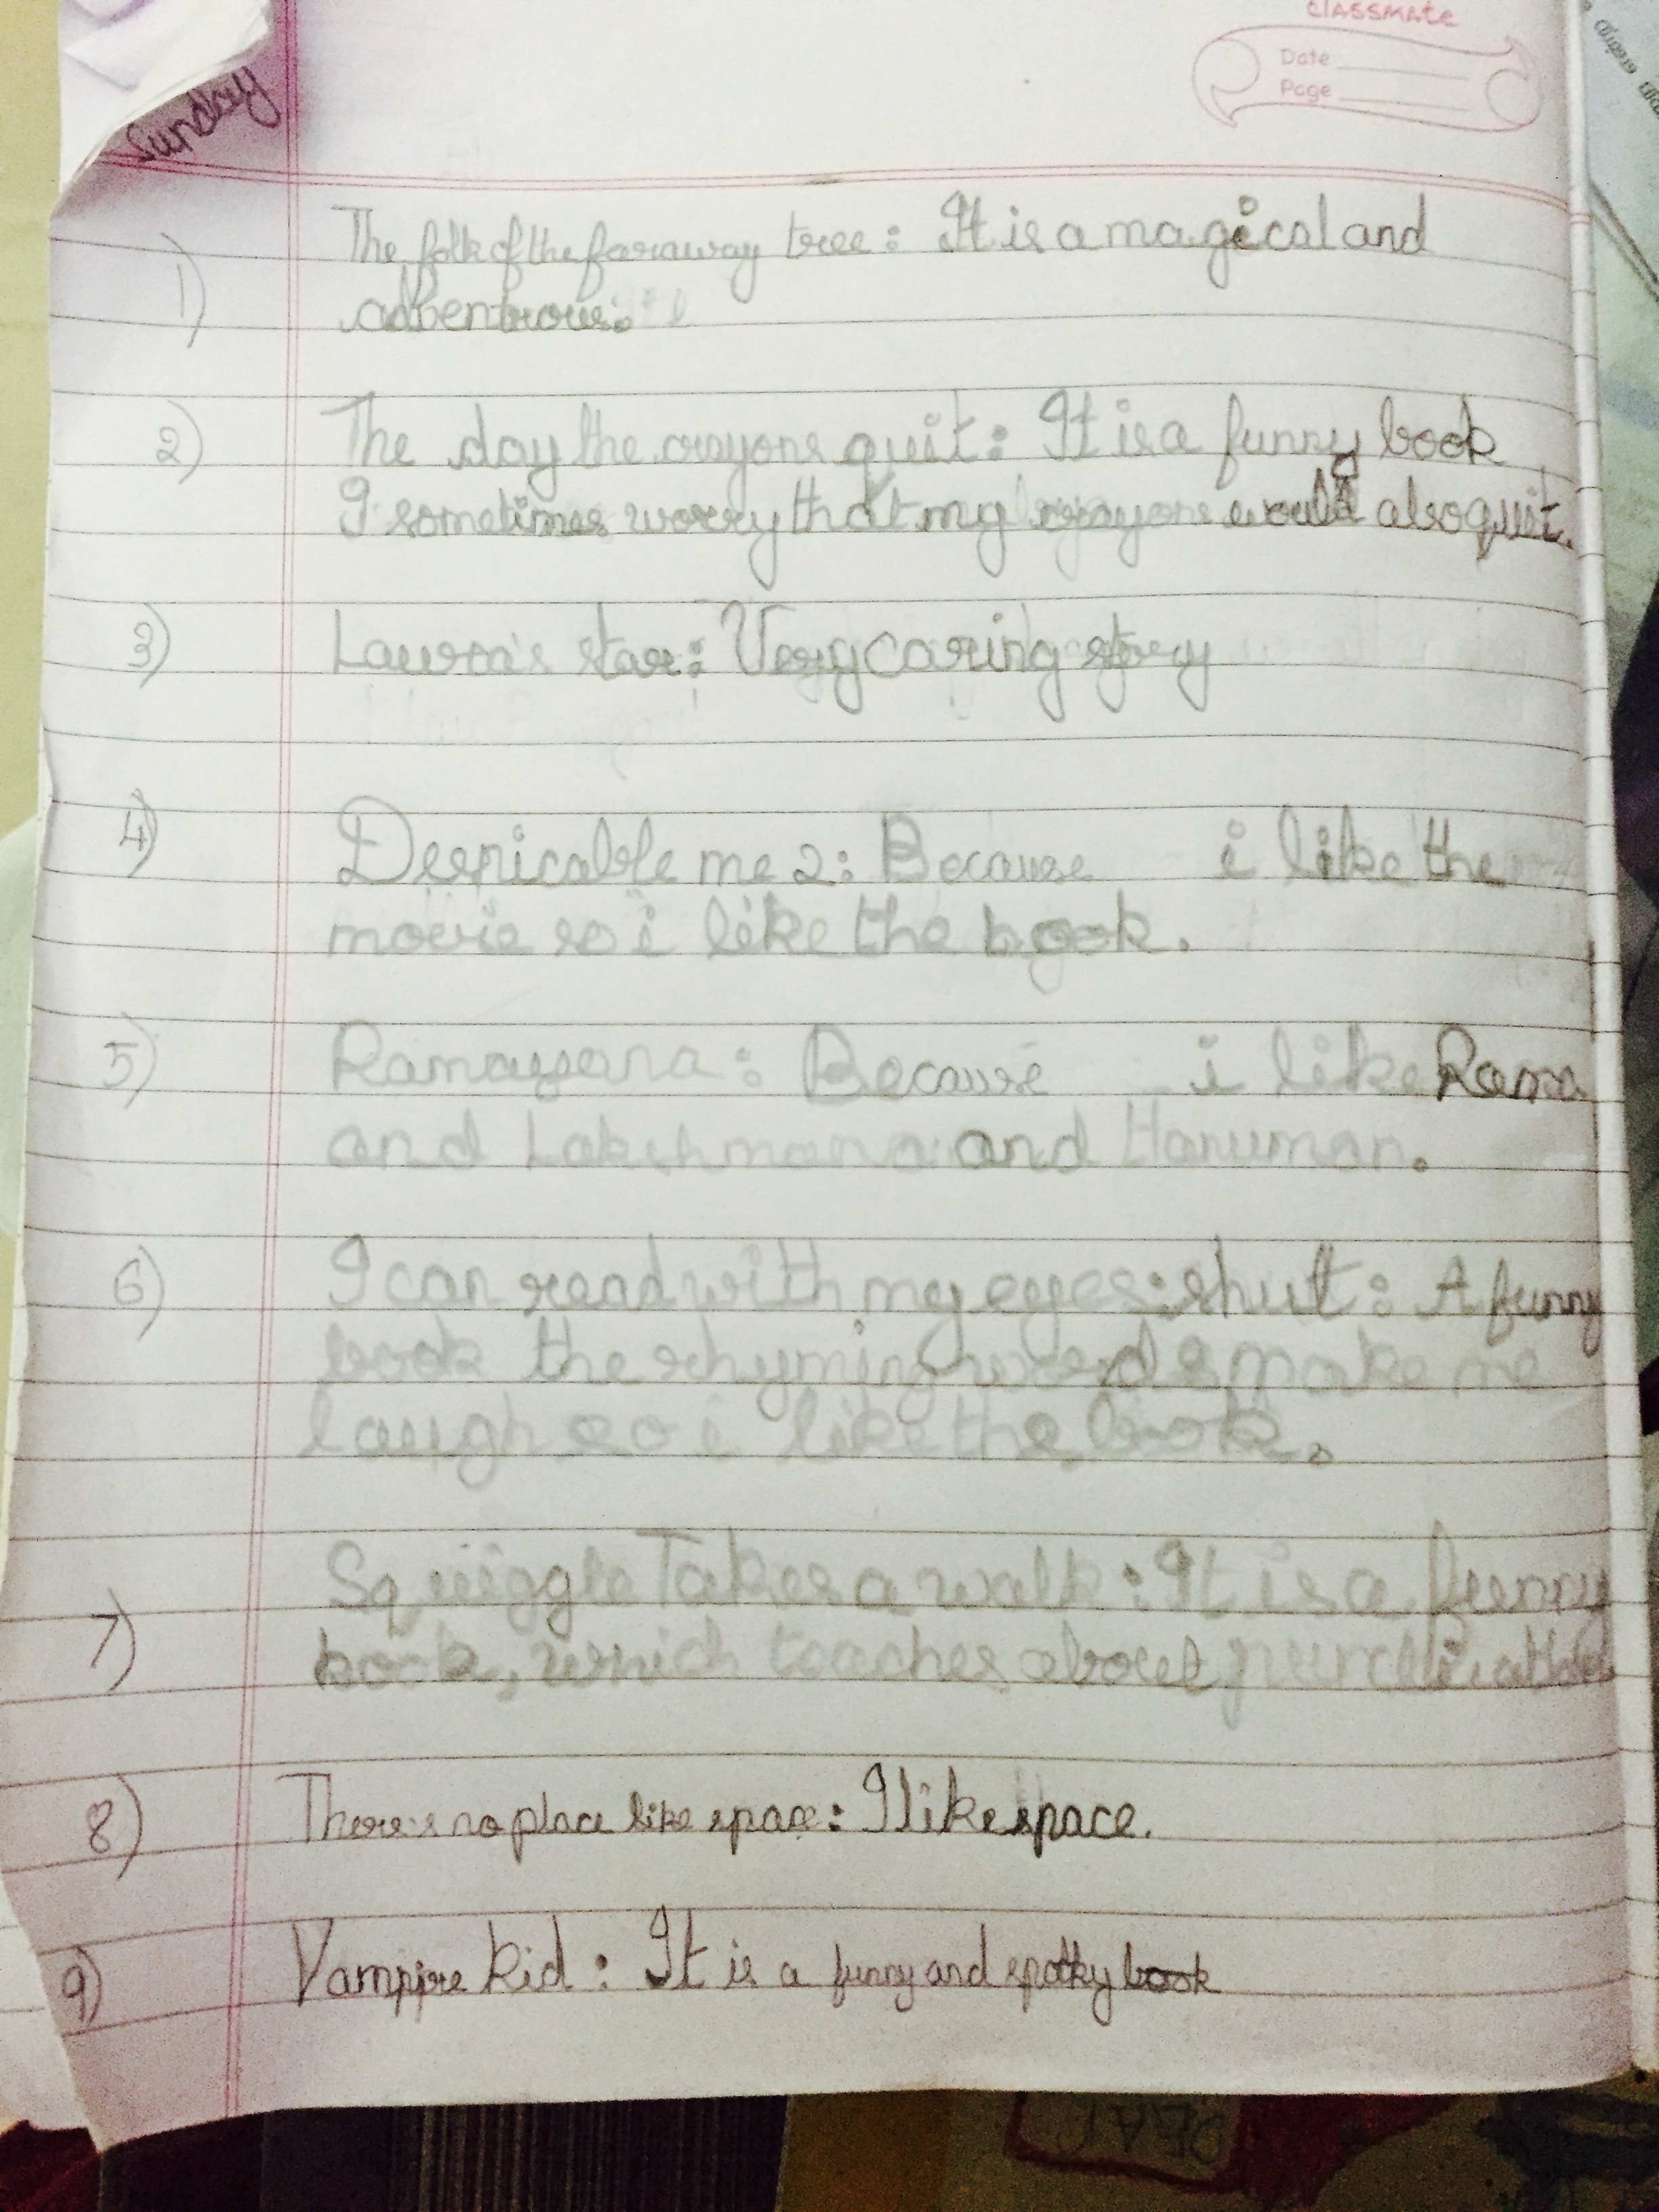 classmate
Date
Page
Sunday
1) The folk of the faraway tree: It is a magical and
adventrous.
2) The day the crayons quit: It is a funny book
I sometimes worry that my crayons would also quit.
3) Laura's star: Very caring story
4) Despicable me 2: Because i like the
movie so i like the book.
5) Ramayana: Because i like Rama
and Lakshmana and Hanuman.
6) I can read with my eyes shut: A funny
book the rhyming words make me
laugh so i like the book.
7) Squiggle Takes a walk: It is a funny
book, which teaches about
8) There's no place like space: I like space.
9) Vampire kid: It is a funny and book